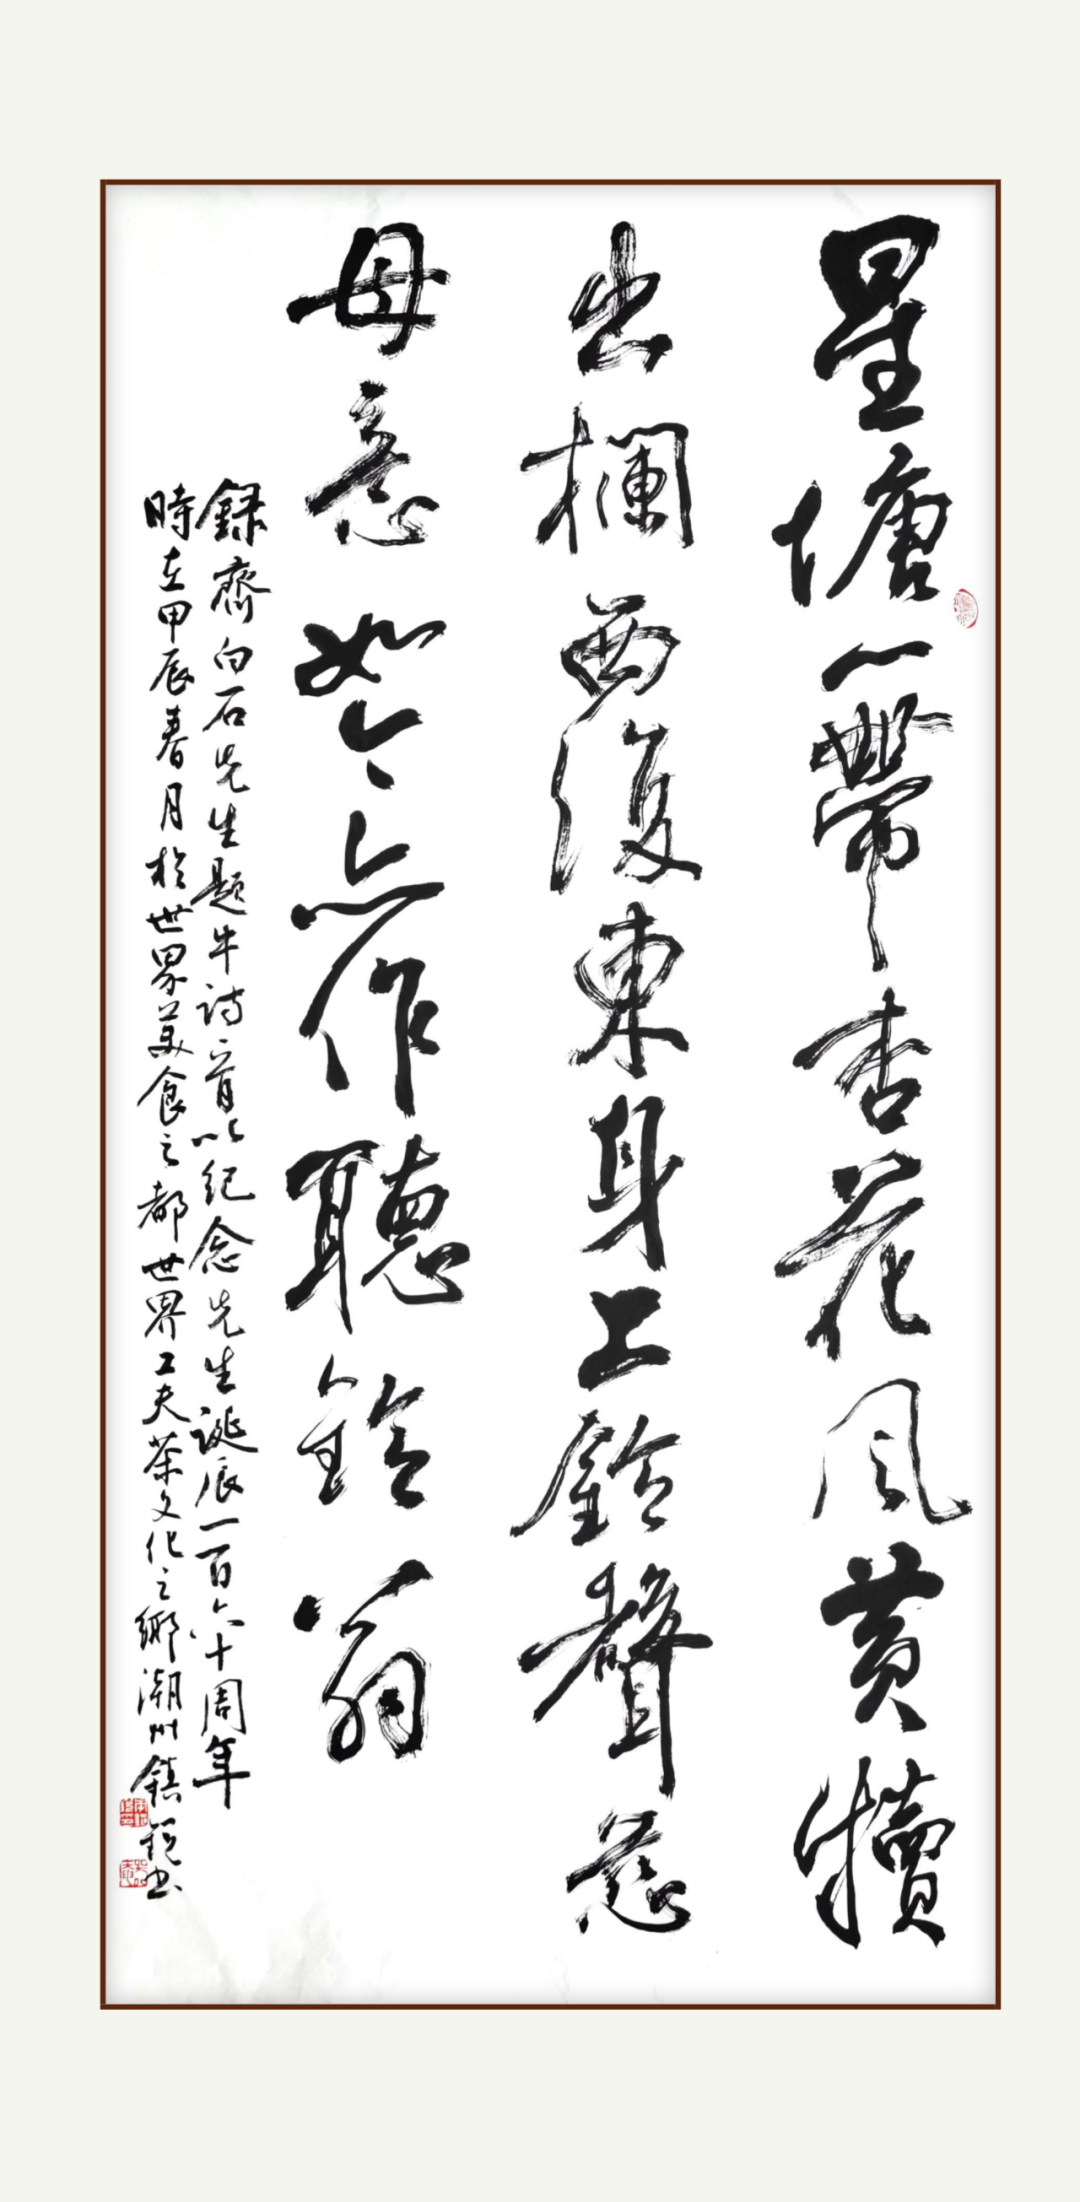 星塘一帶杏花风黄犢
出欄西復東身上鈴聲慈
母意如今亦作聽鈴翁
録齊白石先生題牛詩一首以纪念先生誕辰一百六十周年
時在甲辰春月於世界美食之都世界工夫茶文化之鄉潮州鎮書